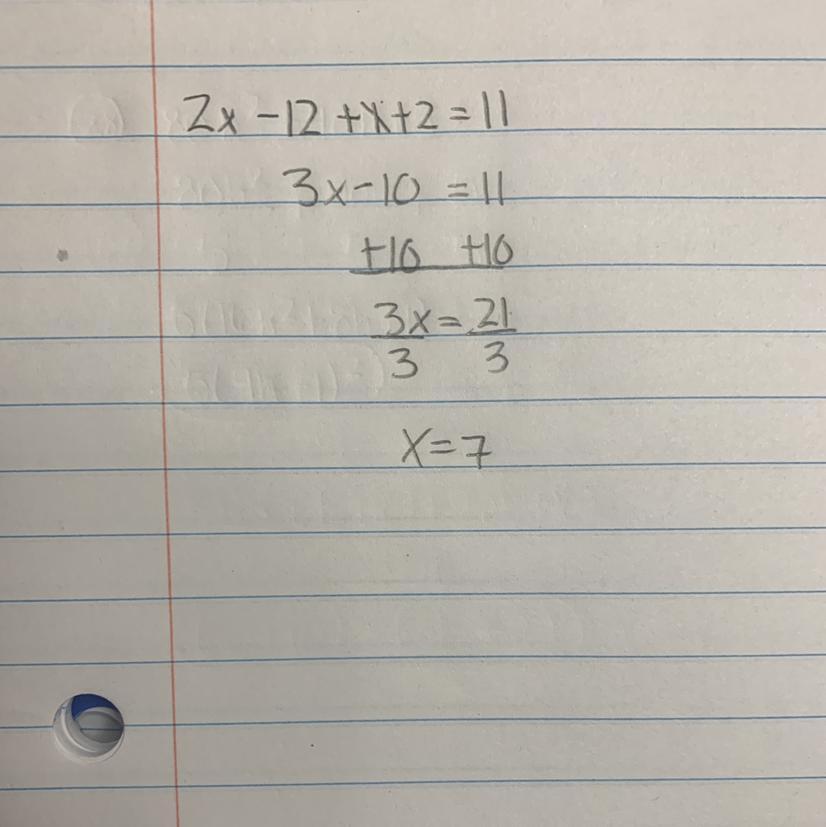 2x - 12 + x + 2 = 11
3x - 10 = 11
+10 +10
3x = 21
3 3
x = 7